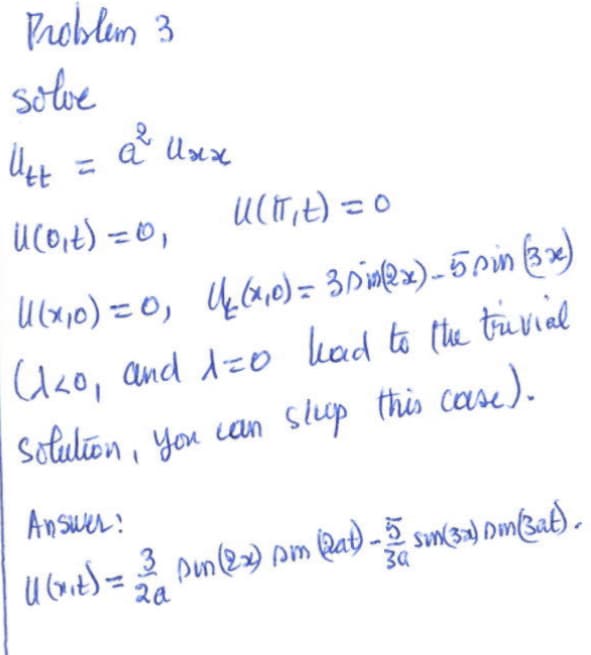 Problem 3
solve
u_tt = a² u_xx
u(0,t) = 0, u(π,t) = 0
u(x,0) = 0, u_t(x,0) = 3 sin(2x) - 5 sin(3x)
(λ<0, and λ=0 lead to the trivial
solution, you can skip this case).
Answer:
u(x,t) = 3/2a sin(2x) sin(2at) - 5/3a sin(3x) sin(3at).